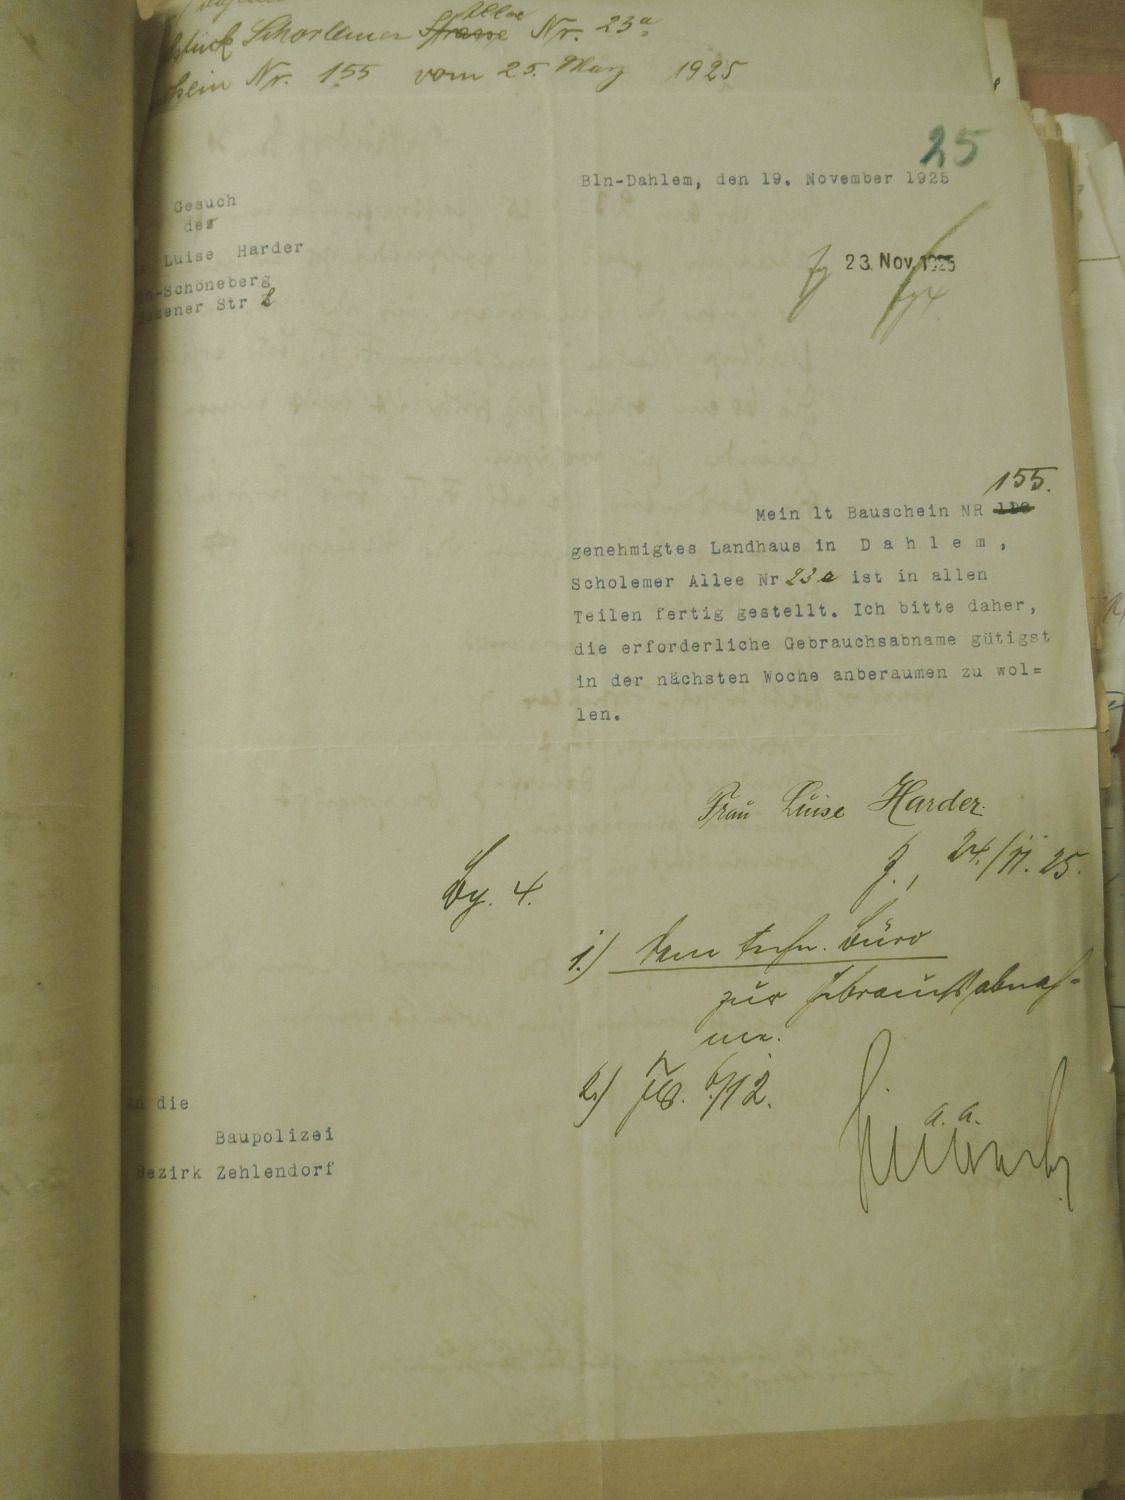 Schorlemer Strasse Allee Nr. 23a
Nr. 155 vom 25. März 1925
25
Bln-Dahlem, den 19. November 1925
Gesuch
der
Luise Harder
-Schöneberg
Str
23. Nov. 1925
155.
Mein lt Bauschein NR
genehmigtes Landhaus in D a h l e m ,
Scholemer Allee Nr 23 a ist in allen
Teilen fertig gestellt. Ich bitte daher,
die erforderliche Gebrauchsabname gütigst
in der nächsten Woche anberaumen zu wol=
len.
Frau Luise Harder.
Z., 24./11. 25.
By. 4.
1.) Dem techn. Büro
zur Gebrauchsabnah-
me.
2.) 6/12.
die
Baupolizei
Bezirk Zehlendorf